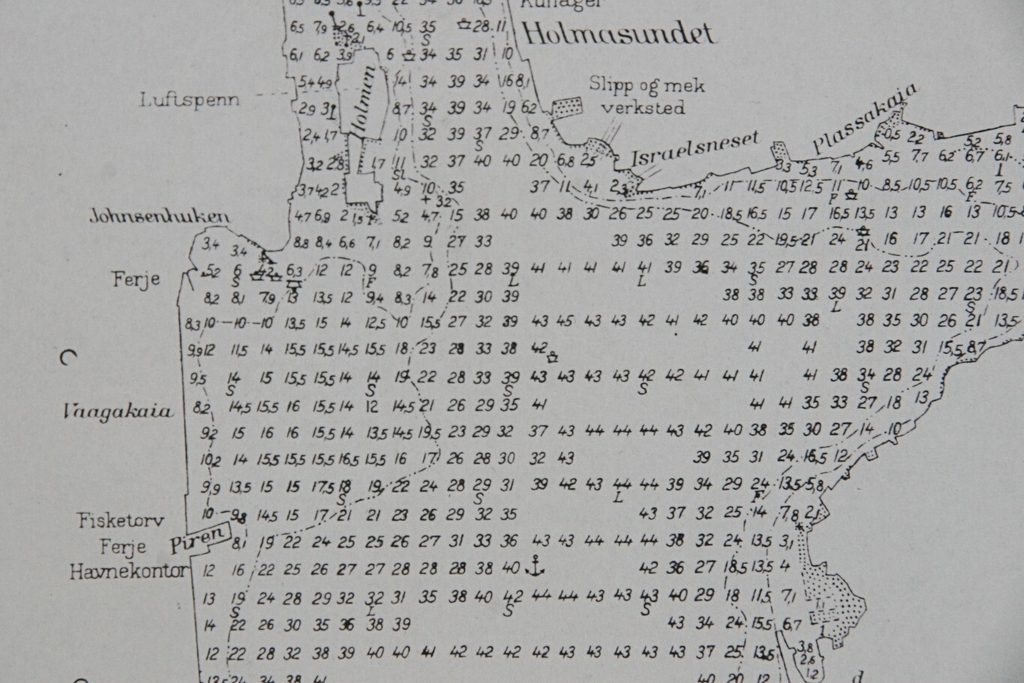 Holmasundet
6,5 7,9 2,6 6,4 10,5 35 28 11
6,1 6,2 3,9 6 34 35 31 10
5,4 4,9 14 34 39 34 16 8,1
Slipp og mek
verksted
Luftspenn
Holmen
2,9 31 8,7 34 39 34 19 6,2
2,4 1,7 10 32 39 37 29 8,7
3,2 2,8 1,7 11 32 37 40 40 20 6,8 2,5
Israelsneset
Plassakaia
3,7 4,2 2 4,9 10 35 37 11 4,1 2,3
Johnsenhuken
4,7 6,9 2 1,5 5,2 4,7 15 38 40 40 38 30 26 25 25 20 18,5 16,5 15 17 16,5 13,5 13 13 16 13 10,5
3,4 3,4 8,8 8,4 6,6 7,1 8,2 9 27 33 39 36 32 29 25 22 19,5 21 24 21 16 17 21 21 18
Ferje
5,2 6 4,2 6,3 12 12 9 8,2 7,8 25 28 39 41 41 41 41 41 39 36 34 35 27 28 28 24 23 22 25 22 21
8,2 8,1 7,9 13 13,5 12 9,4 8,3 14 22 30 39 38 38 33 33 39 32 31 28 27 23 18,5
8,3 10 10 10 13,5 15 14 12,5 10 15,5 27 32 39 43 45 43 43 42 41 42 40 40 40 38 38 35 30 26 21 13,5
9,9 12 11,5 14 15,5 15,5 14,5 15,5 18 23 28 33 38 42 41 41 38 32 31 15,5 8,7
9,5 14 15 15,5 15,5 14 14 19 22 28 33 39 43 43 43 43 42 42 41 41 41 41 38 34 28 24
Vaagakaia
8,2 14,5 15,5 16 15,5 14 12 14,5 21 26 29 35 41 41 41 35 33 27 18 13
9,2 15 16 16 15,5 14 13,5 14,5 19,5 23 29 32 37 43 44 44 44 43 42 40 38 35 30 27 14 10
10,2 14 15,5 15,5 15,5 16,5 15,5 16 17 26 28 30 32 43 39 35 31 24 16,5 12
9,9 13,5 15 15 17,5 18 19 22 24 28 29 31 39 42 43 44 44 39 34 29 24 13,5 5,8
Fisketorv
10 9,8 14,5 15 17 21 21 23 26 29 32 35 43 37 32 25 14 7,8 2,1
Ferje
Piren
8,1 19 22 24 25 25 26 27 31 33 36 43 43 44 44 44 38 32 24 13,5 3,1
Havnekontor
12 16 22 25 26 27 27 28 28 28 38 40 42 36 27 18,5 13,5 4
13 19 24 28 29 32 32 31 35 38 40 42 44 44 43 43 43 40 29 18 11,5 7,1
14 22 26 30 35 36 38 39 43 34 24 15,5 6,7
12 22 28 32 38 39 40 40 41 42 42 42 42 43 43 43 43 43 37 25 13,5 3,8
2,6
1,2
13,5 24 34 38 41 40 20 12